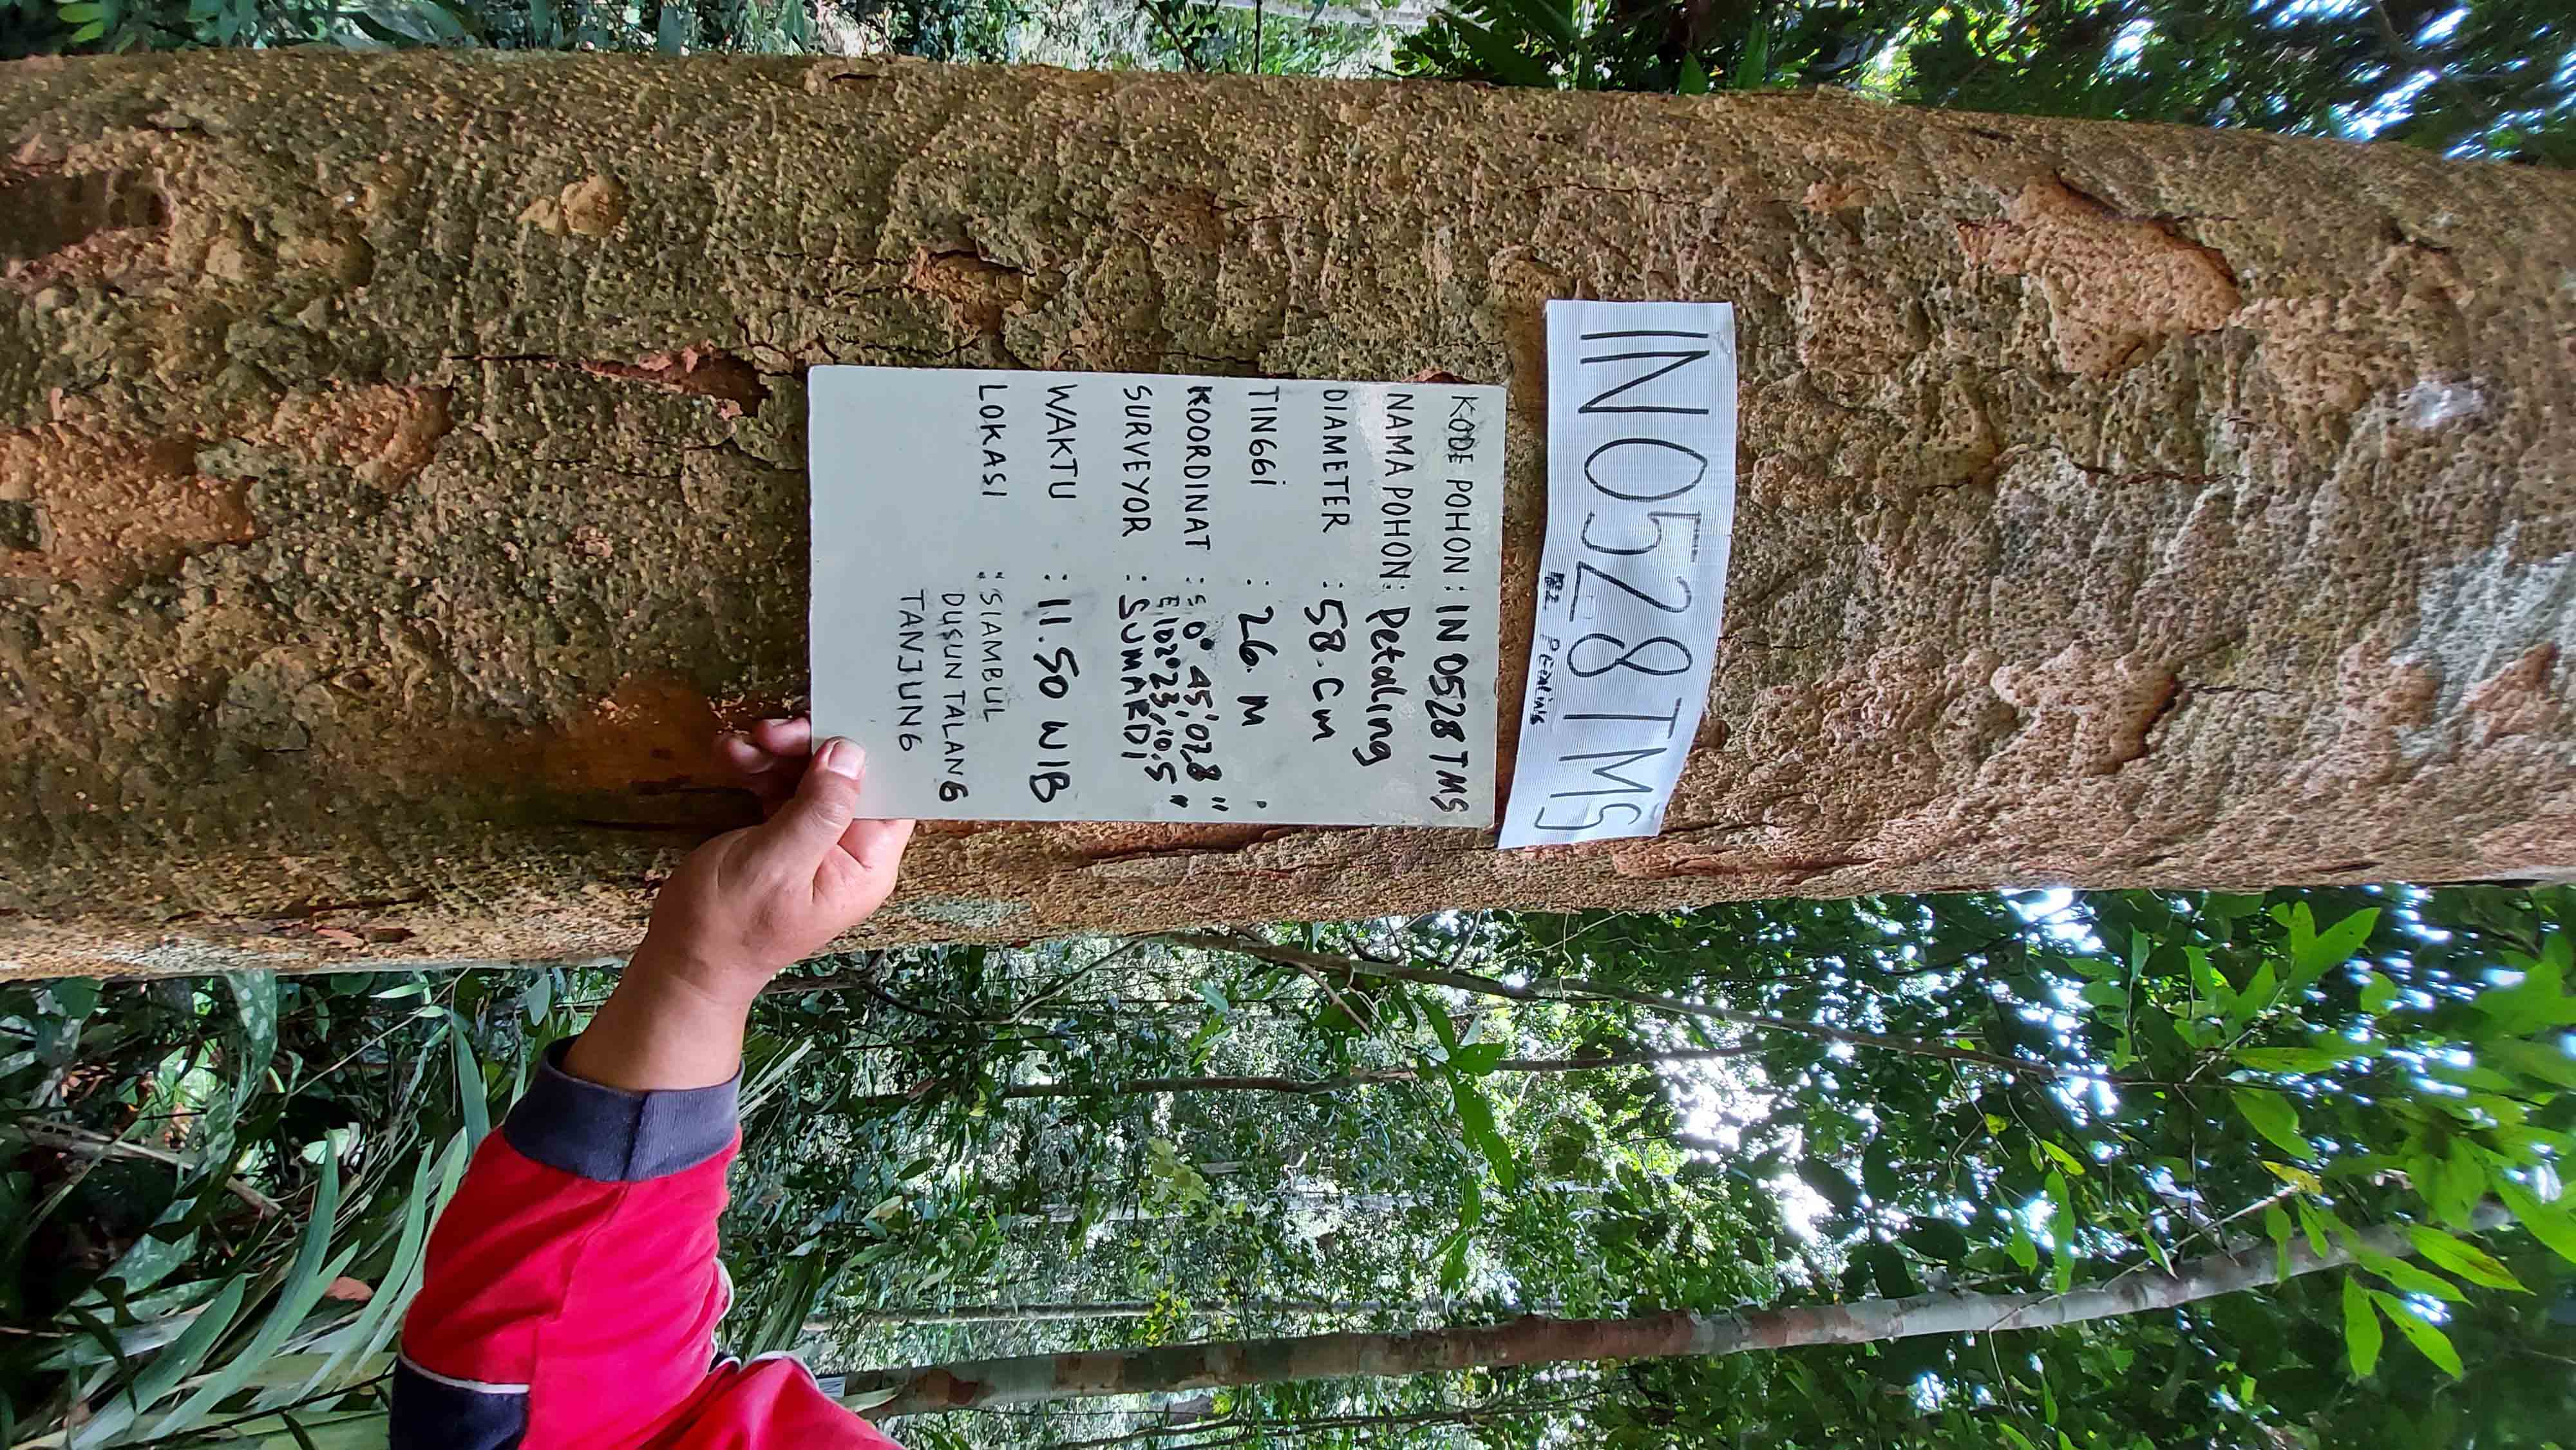 IN0528TMS
PETALING
KODE POHON : IN 0528 TMS
NAMA POHON : Petaling
DIAMETER : 58. Cm
TINGGI : 26. M
KOORDINAT : S 0° 45', 07,8 "
E, 102° 23, 10.5 "
SURVEYOR : SUMARDI
WAKTU : 11.50 WIB
LOKASI : SIAMBUL
DUSUN TALANG
TANJUNG